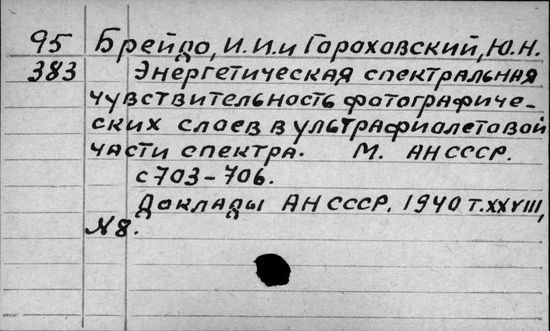 95 Брейдо, И. И. и Гороховский, Ю. Н.
383 Энергетическая спектральная
чувствительность фотографиче-
ских слоев в ультрафиолетовой
части спектра. М. АН СССР.
с 703-706.
Доклады АН СССР. 1940 т. XXVIII,
№ 8.